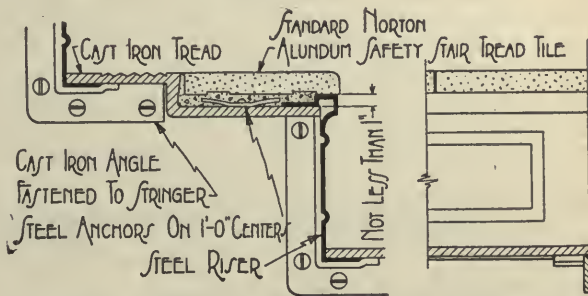 STANDARD NORTON
CAST IRON TREAD
ALUNDUM SAFETY STAIR TREAD TILE
CAST IRON ANGLE
FASTENED TO STRINGER
STEEL ANCHORS ON 1'-0" CENTERS
STEEL RISER
NOT LESS THAN 1"